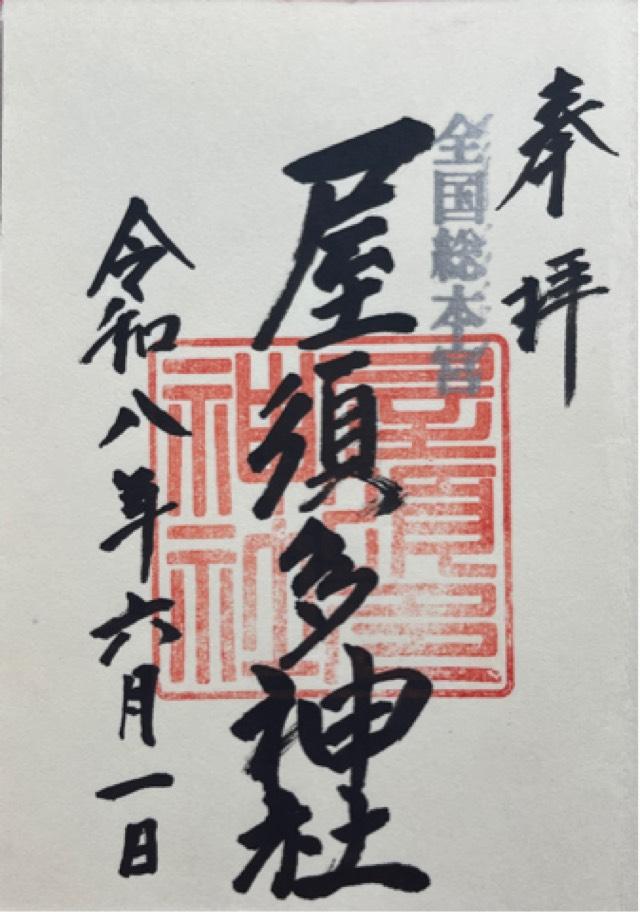 奉拝
全国総本宮
屋須多神社
令和八年六月一日